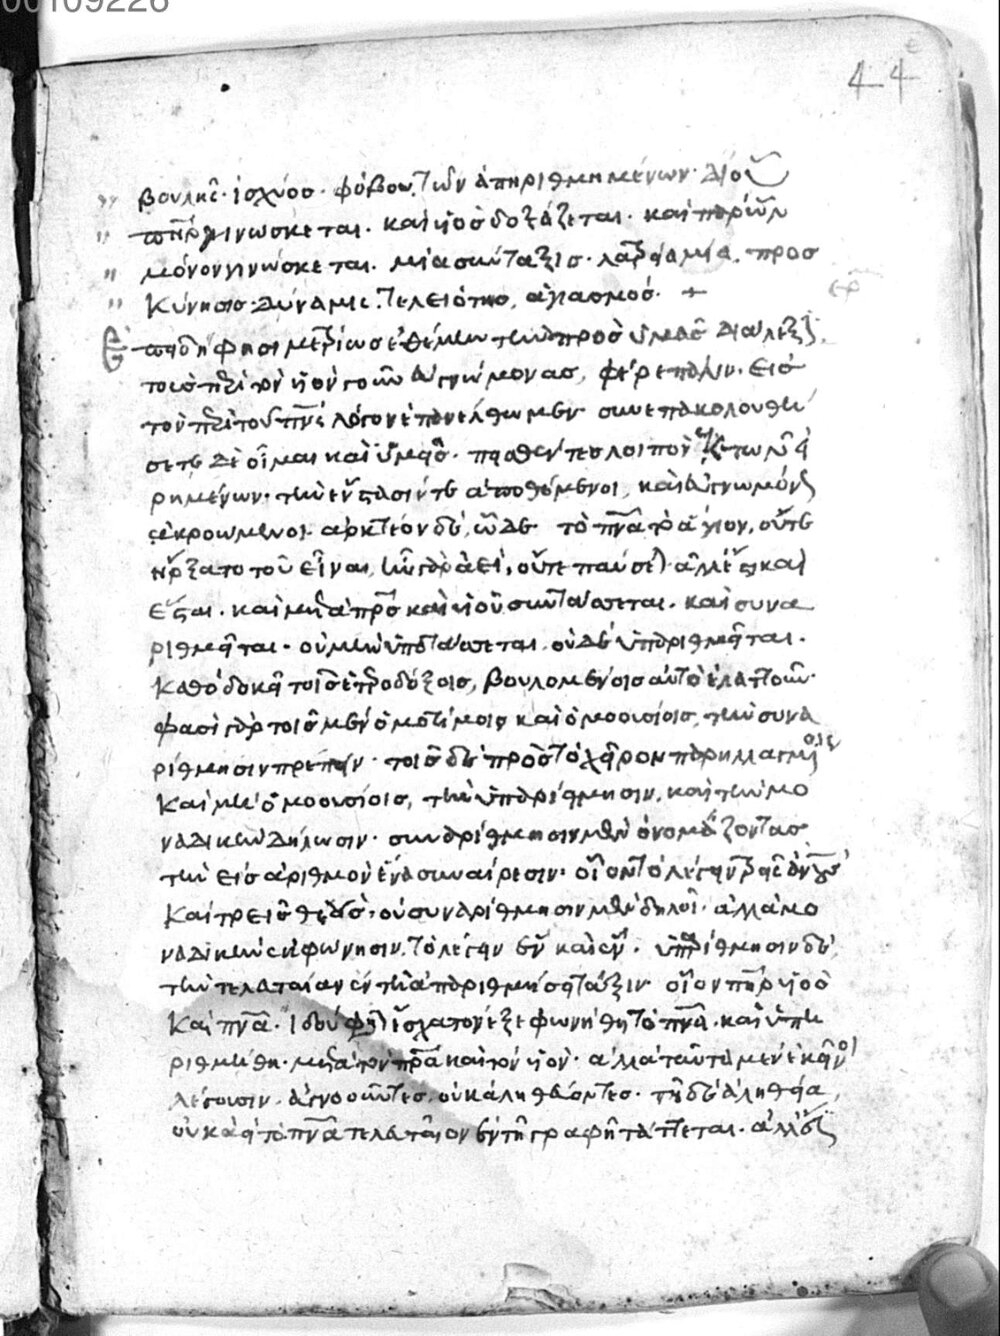 00109226
44
βουλῆς· ἰσχύος· φόβου, τῶν ἀπηριθμημένων· δι' οὗ
πὴρ γινώσκεται· καὶ υἱὸς δοξάζεται· καὶ παρ' ὧν
μόνον γινώσκεται· μία σύνταξις· λατρεία μία, προσ
κύνησις· δύναμις· τελειότης, ἁγιασμός· +
φησι μετρίως ἐθέμεθα τὴν πρὸς ὑμᾶς διάλεξιν
τοὺς περὶ τὸν υἱὸν ἀγνώμονας, φέρε πάλιν· εἰς
τὸν περὶ τοῦ πνς λόγον ἐπανέλθωμεν· συνεπακολουθή
σετε δὲ οἶμαι καὶ ὑμεῖς· πεισθέντες λοιπὸν ἐκ τῶν εἰ
ρημένων· τὴν ἔνστασίν τε ἀποθέμενοι, καὶ ἀγνωμόνως
ἀκροώμενοι· ἀρκτέον δὲ, ὧδε τὸ πνα τὸ ἅγιον, οὔτε
ἤρξατο τοῦ εἶναι, ἦν γὰρ ἀεὶ, οὔτε παύσεται· ἀλλ' ἔστι καὶ
ἔσται· καὶ μετὰ πρς καὶ υἱοῦ συντάττεται· καὶ συνα
ριθμεῖται· οὐ μὴν ὑποτάττεται, οὐδὲ ὑπαριθμεῖται·
καθὸ δοκεῖ τοῖς ἑτεροδόξοις, βουλομένοις αὐτὸ ἐλαττοῦν·
φασὶ γὰρ τοῖς μὲν ὁμοτίμοις καὶ ὁμοουσίοις, τὴν συνα
ρίθμησιν πρέπειν· τοῖς δὲ πρὸς τὸ χεῖρον παρηλλαγμένοις
καὶ μὴ ὁμοουσίοις, τὴν ὑπαρίθμησιν, καὶ τὴν μο
ναδικὴν δήλωσιν· συναρίθμησιν μὲν ὀνομάζοντας
τὴν εἰς ἀριθμὸν ἕνα συναίρεσιν· οἷον τὸ λέγειν τρεῖς ἀνους
καὶ τρεῖς θεούς· οὐ συναρίθμησιν μὲν δηλοῖ· ἀλλὰ μο
ναδικὴν ἐκφώνησιν, τὸ λέγειν ἓν καὶ ἕν· ὑπαρίθμησιν δὲ,
τὴν τελευταίαν ἐν τῇ ἀπαριθμήσει τάξιν· οἷον πὴρ υἱὸς
καὶ πνα· ἰδοὺ φησὶν ἔσχατον ἐξεφωνήθη τὸ πνα· καὶ ὑπη
ριθμήθη· μετὰ τὸν πρα καὶ τὸν υἱὸν· ἀλλὰ ταῦτα μὲν ἐκεῖνοι
λέγουσιν· ἀγνοοῦντες, οὐκ ἀληθεύοντες· τῇ δὲ ἀληθεία,
οὐκ ἀεὶ τὸ πνα τελευταῖον ἐν τῇ γραφῇ τάττεται· ἀλλ'